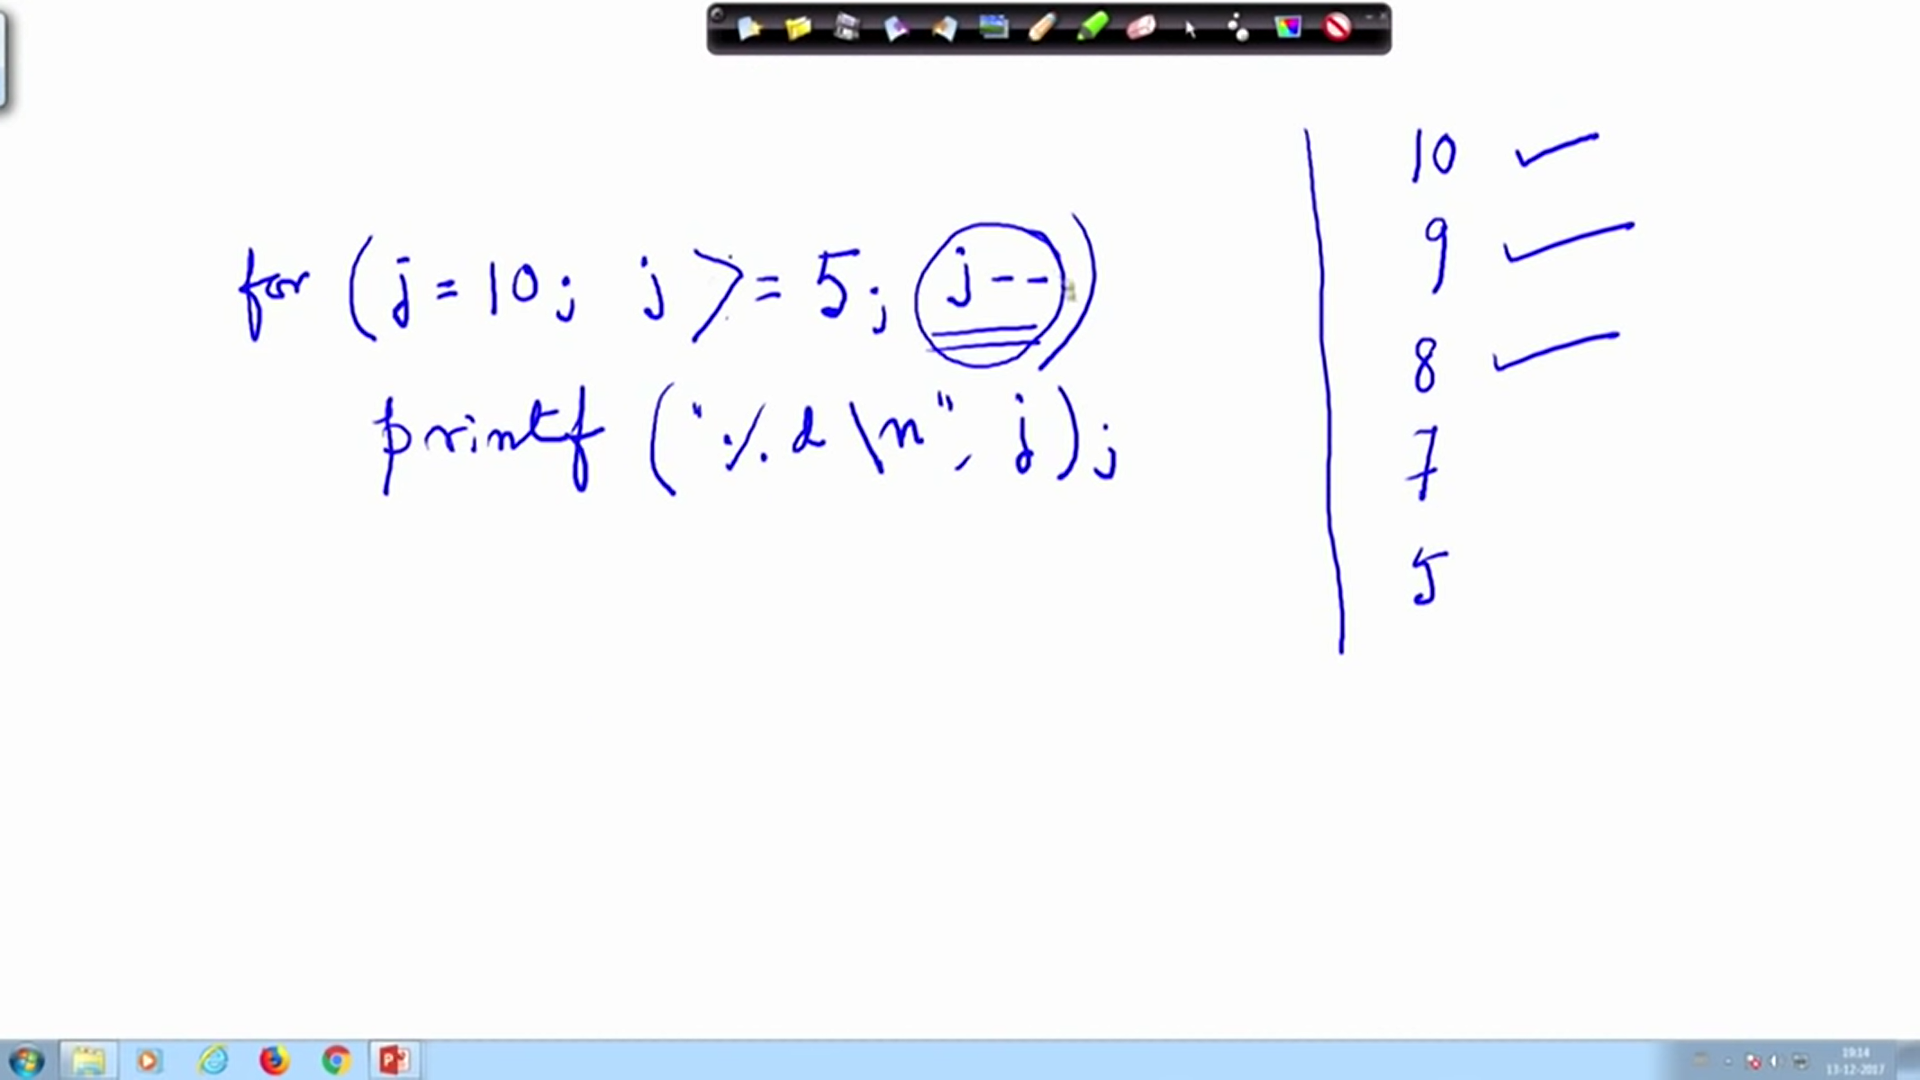 for (j = 10; j >= 5; j--)
printf ("%d \n", j);
10
9
8
7
5
19:14
13-12-2017